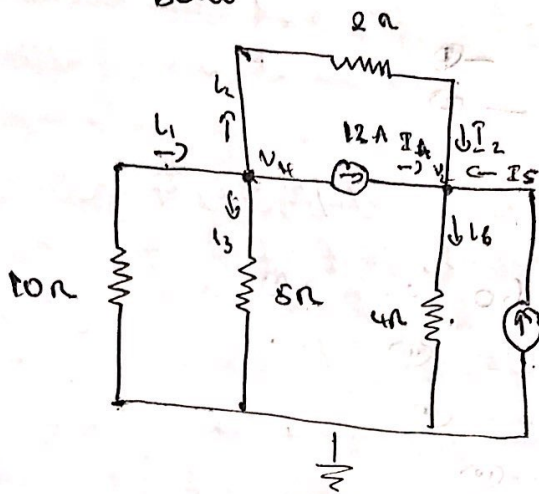 2Ω
I₂
↑
I₁
→
12A I₄
→
↓ I₂
← I5
↓
I3
↓ I6
10Ω
5Ω
4Ω